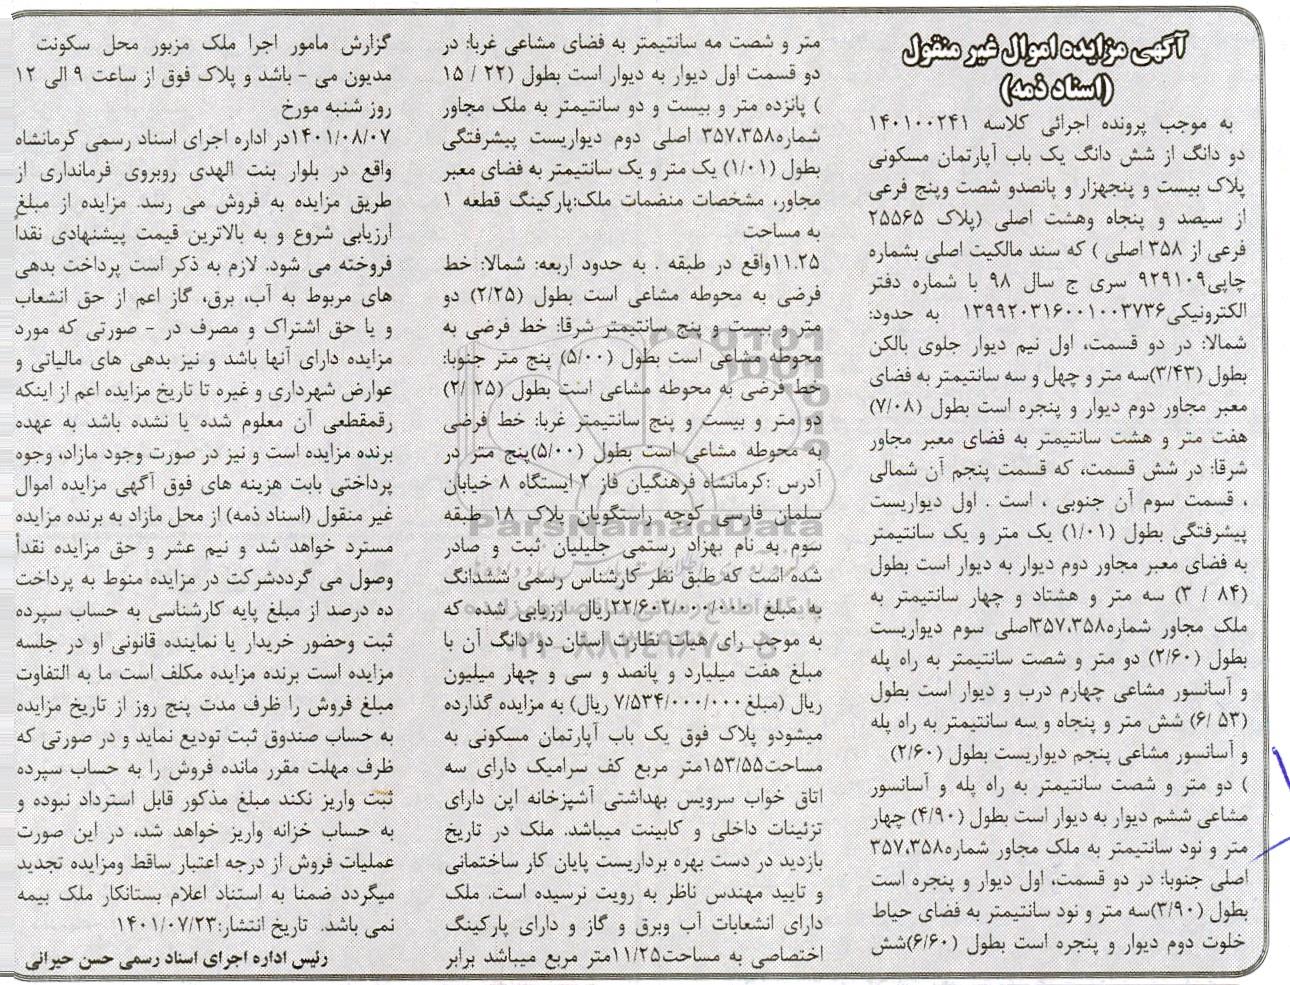 آگهی مزایده اموال غیر منقول
(اسناد ذمه)
به موجب پرونده اجرائی کلاسه ۱۴۰۱۰۰۲۴۱
دو دانگ از شش دانگ یک باب آپارتمان مسکونی
پلاک بیست و پنجهزار و پانصدو شصت وپنج فرعی
از سیصد و پنجاه وهشت اصلی (پلاک ۲۵۵۶۵
فرعی از ۳۵۸ اصلی ) که سند مالکیت اصلی بشماره
چاپی۹۲۹۱۰۹ سری ج سال ۹۸ با شماره دفتر
الکترونیکی۱۳۹۹۲۰۳۱۶۰۰۱۰۰۳۷۳۶ به حدود:
شمالا: در دو قسمت، اول نیم دیوار جلوی بالکن
بطول (۳/۴۳)سه متر و چهل و سه سانتیمتر به فضای
معبر مجاور دوم دیوار و پنجره است بطول (۷/۰۸)
هفت متر و هشت سانتیمتر به فضای معبر مجاور
شرقا: در شش قسمت، که قسمت پنجم آن شمالی
، قسمت سوم آن جنوبی ، است . اول دیواریست
پیشرفتگی بطول (۱/۰۱) یک متر و یک سانتیمتر
به فضای معبر مجاور دوم دیوار به دیوار است بطول
(۸۴ / ۳) سه متر و هشتاد و چهار سانتیمتر به
ملک مجاور شماره۳۵۷،۳۵۸اصلی سوم دیواریست
بطول (۲/۶۰) دو متر و شصت سانتیمتر به راه پله
و آسانسور مشاعی چهارم درب و دیوار است بطول
(۵۳ /۶) شش متر و پنجاه و سه سانتیمتر به راه پله
و آسانسور مشاعی پنجم دیواریست بطول (۲/۶۰)
) دو متر و شصت سانتیمتر به راه پله و آسانسور
مشاعی ششم دیوار به دیوار است بطول (۴/۹۰) چهار
متر و نود سانتیمتر به ملک مجاور شماره۳۵۷،۳۵۸
اصلی جنوبا: در دو قسمت، اول دیوار و پنجره است
بطول (۳/۹۰)سه متر و نود سانتیمتر به فضای حیاط
خلوت دوم دیوار و پنجره است بطول (۶/۶۰)شش
متر و شصت مه سانتیمتر به فضای مشاعی غربا: در
دو قسمت اول دیوار به دیوار است بطول (۲۲ / ۱۵
) پانزده متر و بیست و دو سانتیمتر به ملک مجاور
شماره۳۵۷،۳۵۸ اصلی دوم دیواریست پیشرفتگی
بطول (۱/۰۱) یک متر و یک سانتیمتر به فضای معبر
مجاور، مشخصات منضمات ملک:پارکینگ قطعه ۱
به مساحت
۱۱.۲۵واقع در طبقه . به حدود اربعه: شمالا: خط
فرضی به محوطه مشاعی است بطول (۲/۲۵) دو
متر و بیست و پنج سانتیمتر شرقا: خط فرضی به
محوطه مشاعی است بطول (۵/۰۰) پنج متر جنوبا:
خط فرضی به محوطه مشاعی است بطول (۲۵ /۲)
دو متر و بیست و پنج سانتیمتر غربا: خط فرضی
به محوطه مشاعی است بطول (۵/۰۰)پنج متر در
آدرس :کرمانشاه فرهنگیان فاز ۲ ایستگاه ۸ خیابان
سلمان فارسی کوچه راستگویان پلاک ۱۸ طبقه
سوم به نام بهزاد رستمی جلیلیان ثبت و صادر
شده است که طبق نظر کارشناس رسمی ششدانگ
به مبلغ ۲۲/۶۰۲/۰۰۰/۰۰۰ریال ارزیابی شده که
به موجب رای هیئت نظارت استان دو دانگ آن با
مبلغ هفت میلیارد و پانصد و سی و چهار میلیون
ریال (مبلغ ۷/۵۳۴/۰۰۰/۰۰۰ ریال) به مزایده گذارده
میشودو پلاک فوق یک باب آپارتمان مسکونی به
مساحت۱۵۳/۵۵متر مربع کف سرامیک دارای سه
اتاق خواب سرویس بهداشتی آشپزخانه اپن دارای
تزئینات داخلی و کابینت میباشد. ملک در تاریخ
بازدید در دست بهره برداریست پایان کار ساختمانی
و تایید مهندس ناظر به رویت نرسیده است. ملک
دارای انشعابات آب وبرق و گاز و دارای پارکینگ
اختصاصی به مساحت۱۱/۲۵متر مربع میباشد برابر
گزارش مامور اجرا ملک مزبور محل سکونت
مدیون می - باشد و پلاک فوق از ساعت ۹ الی ۱۲
روز شنبه مورخ
۱۴۰۱/۰۸/۰۷در اداره اجرای اسناد رسمی کرمانشاه
واقع در بلوار بنت الهدی روبروی فرمانداری از
طریق مزایده به فروش می رسد. مزایده از مبلغ
ارزیابی شروع و به بالاترین قیمت پیشنهادی نقدا
فروخته می شود. لازم به ذکر است پرداخت بدهی
های مربوط به آب، برق، گاز اعم از حق انشعاب
و یا حق اشتراک و مصرف در - صورتی که مورد
مزایده دارای آنها باشد و نیز بدهی های مالیاتی و
عوارض شهرداری و غیره تا تاریخ مزایده اعم از اینکه
رقمقطعی آن معلوم شده یا نشده باشد به عهده
برنده مزایده است و نیز در صورت وجود مازاد، وجوه
پرداختی بابت هزینه های فوق آگهی مزایده اموال
غیر منقول (اسناد ذمه) از محل مازاد به برنده مزایده
مسترد خواهد شد و نیم عشر و حق مزایده نقدأ
وصول می گرددشرکت در مزایده منوط به پرداخت
ده درصد از مبلغ پایه کارشناسی به حساب سپرده
ثبت وحضور خریدار یا نماینده قانونی او در جلسه
مزایده است برنده مزایده مکلف است ما به التفاوت
مبلغ فروش را ظرف مدت پنج روز از تاریخ مزایده
به حساب صندوق ثبت تودیع نماید و در صورتی که
ظرف مهلت مقرر مانده فروش را به حساب سپرده
ثبت واریز نکند مبلغ مذکور قابل استرداد نبوده و
به حساب خزانه واریز خواهد شد، در این صورت
عملیات فروش از درجه اعتبار ساقط ومزایده تجدید
میگردد ضمنا به استناد اعلام بستانکار ملک بیمه
نمی باشد. تاریخ انتشار:۱۴۰۱/۰۷/۲۳
رئیس اداره اجرای اسناد رسمی حسن حیرانی
ParsNamadData